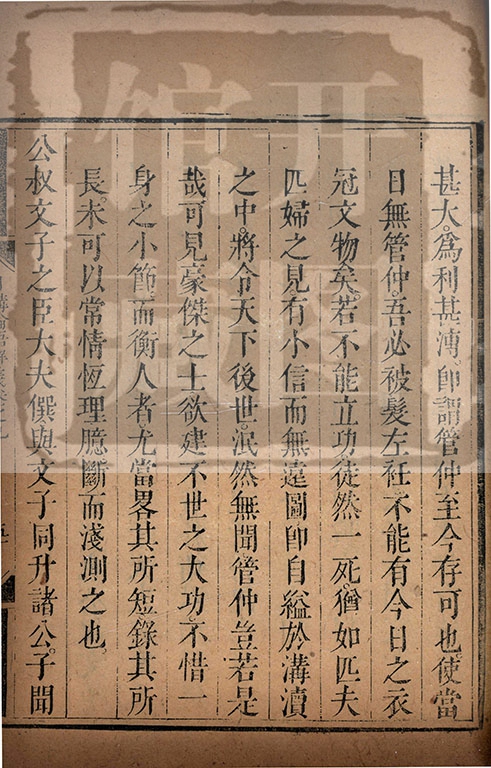 甚大。為利甚溥。卽謂管仲至今存可也。使當
日無管仲。吾必被髮左衽。不能有今日之衣
冠文物矣。若不能立功。徒然一死。猶如匹夫
匹婦之見。有小信而無遠圖。卽自縊於溝瀆
之中。將令天下後世。泯然無聞。管仲豈若是
哉。可見豪傑之士。欲建不世之大功。不惜一
身之小節。而衡人者。尤當畧其所短。錄其所
長。未可以常情恆理。臆斷而淺測之也。
公叔文子之臣大夫僎。與文子同升諸公。子聞